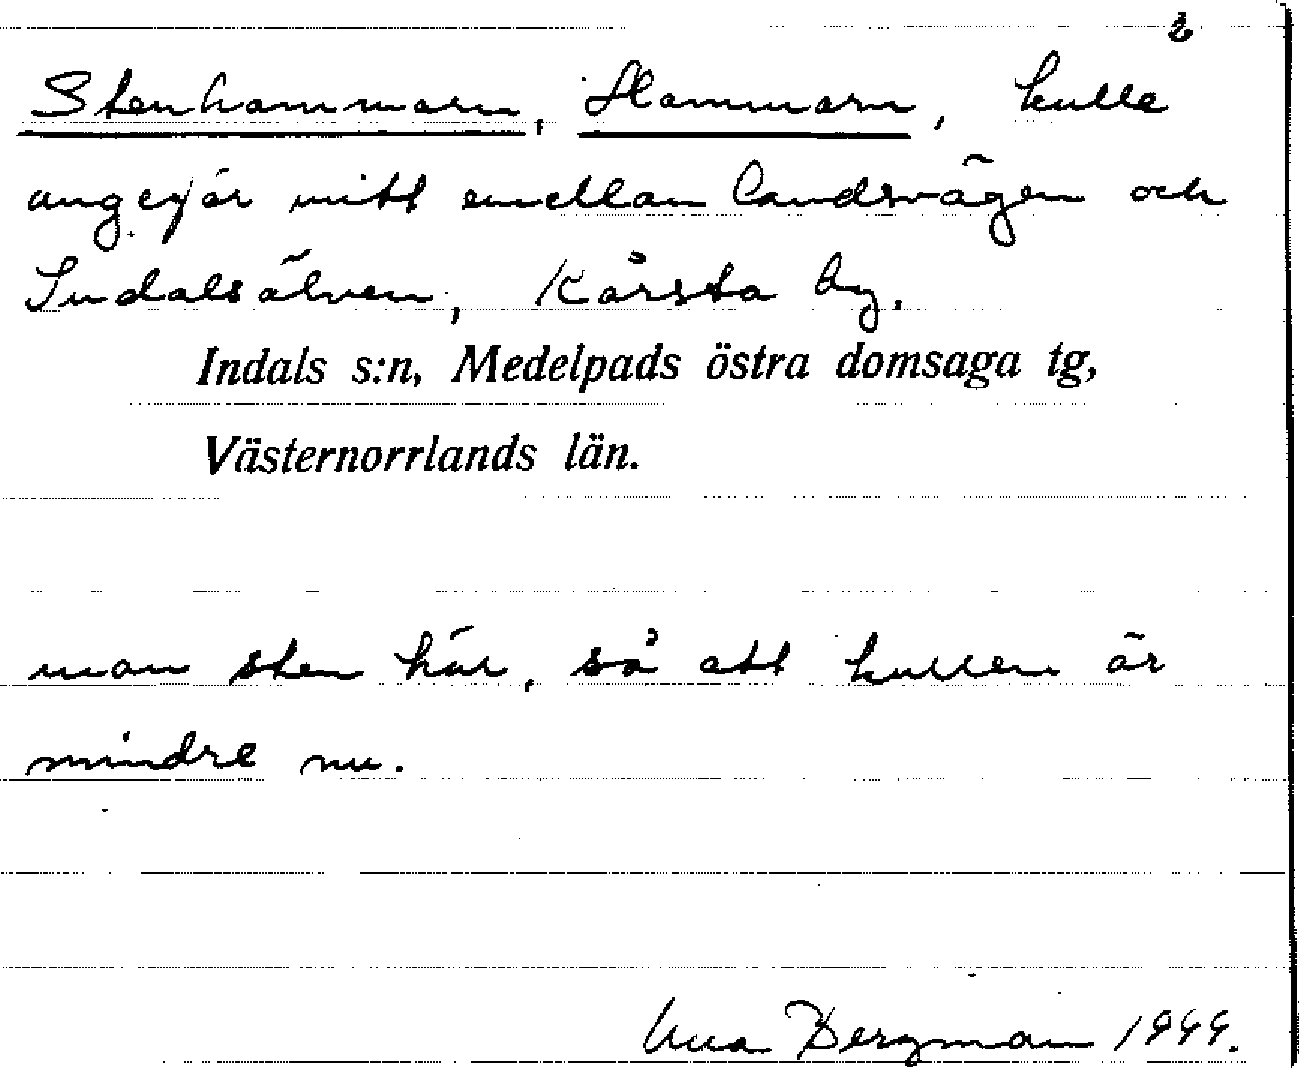 2
Stenhammarn, Hammarn, kulle
ungefär mitt emellan landsvägen och
Indalsälven, Kårsta by.
Indals s:n, Medelpads östra domsaga tg,
Västernorrlands län.
man sten här, så att kullen är
mindre nu.
Bergman